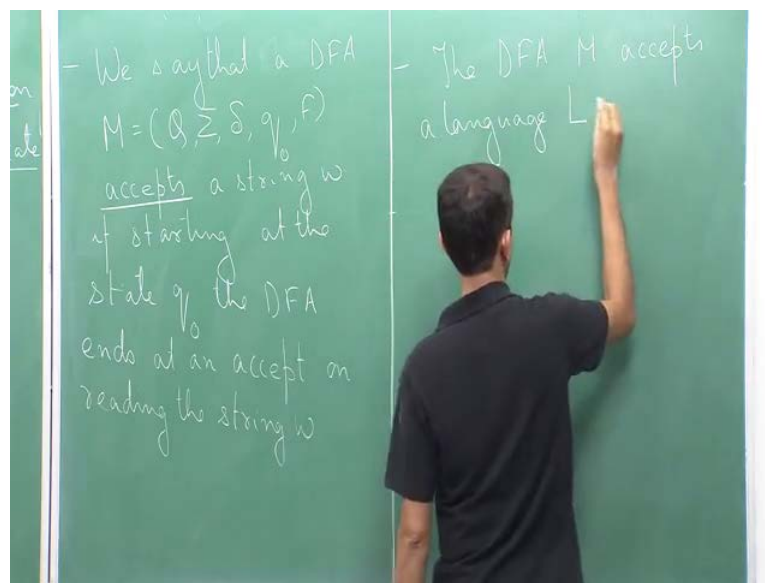 on
ate
- We say that a DFA
M = (Q, Σ, δ, q₀, F)
accepts a string w
if starting at the
state q₀ the DFA
ends at an accept on
reading the string w
- The DFA M accepts
a language L